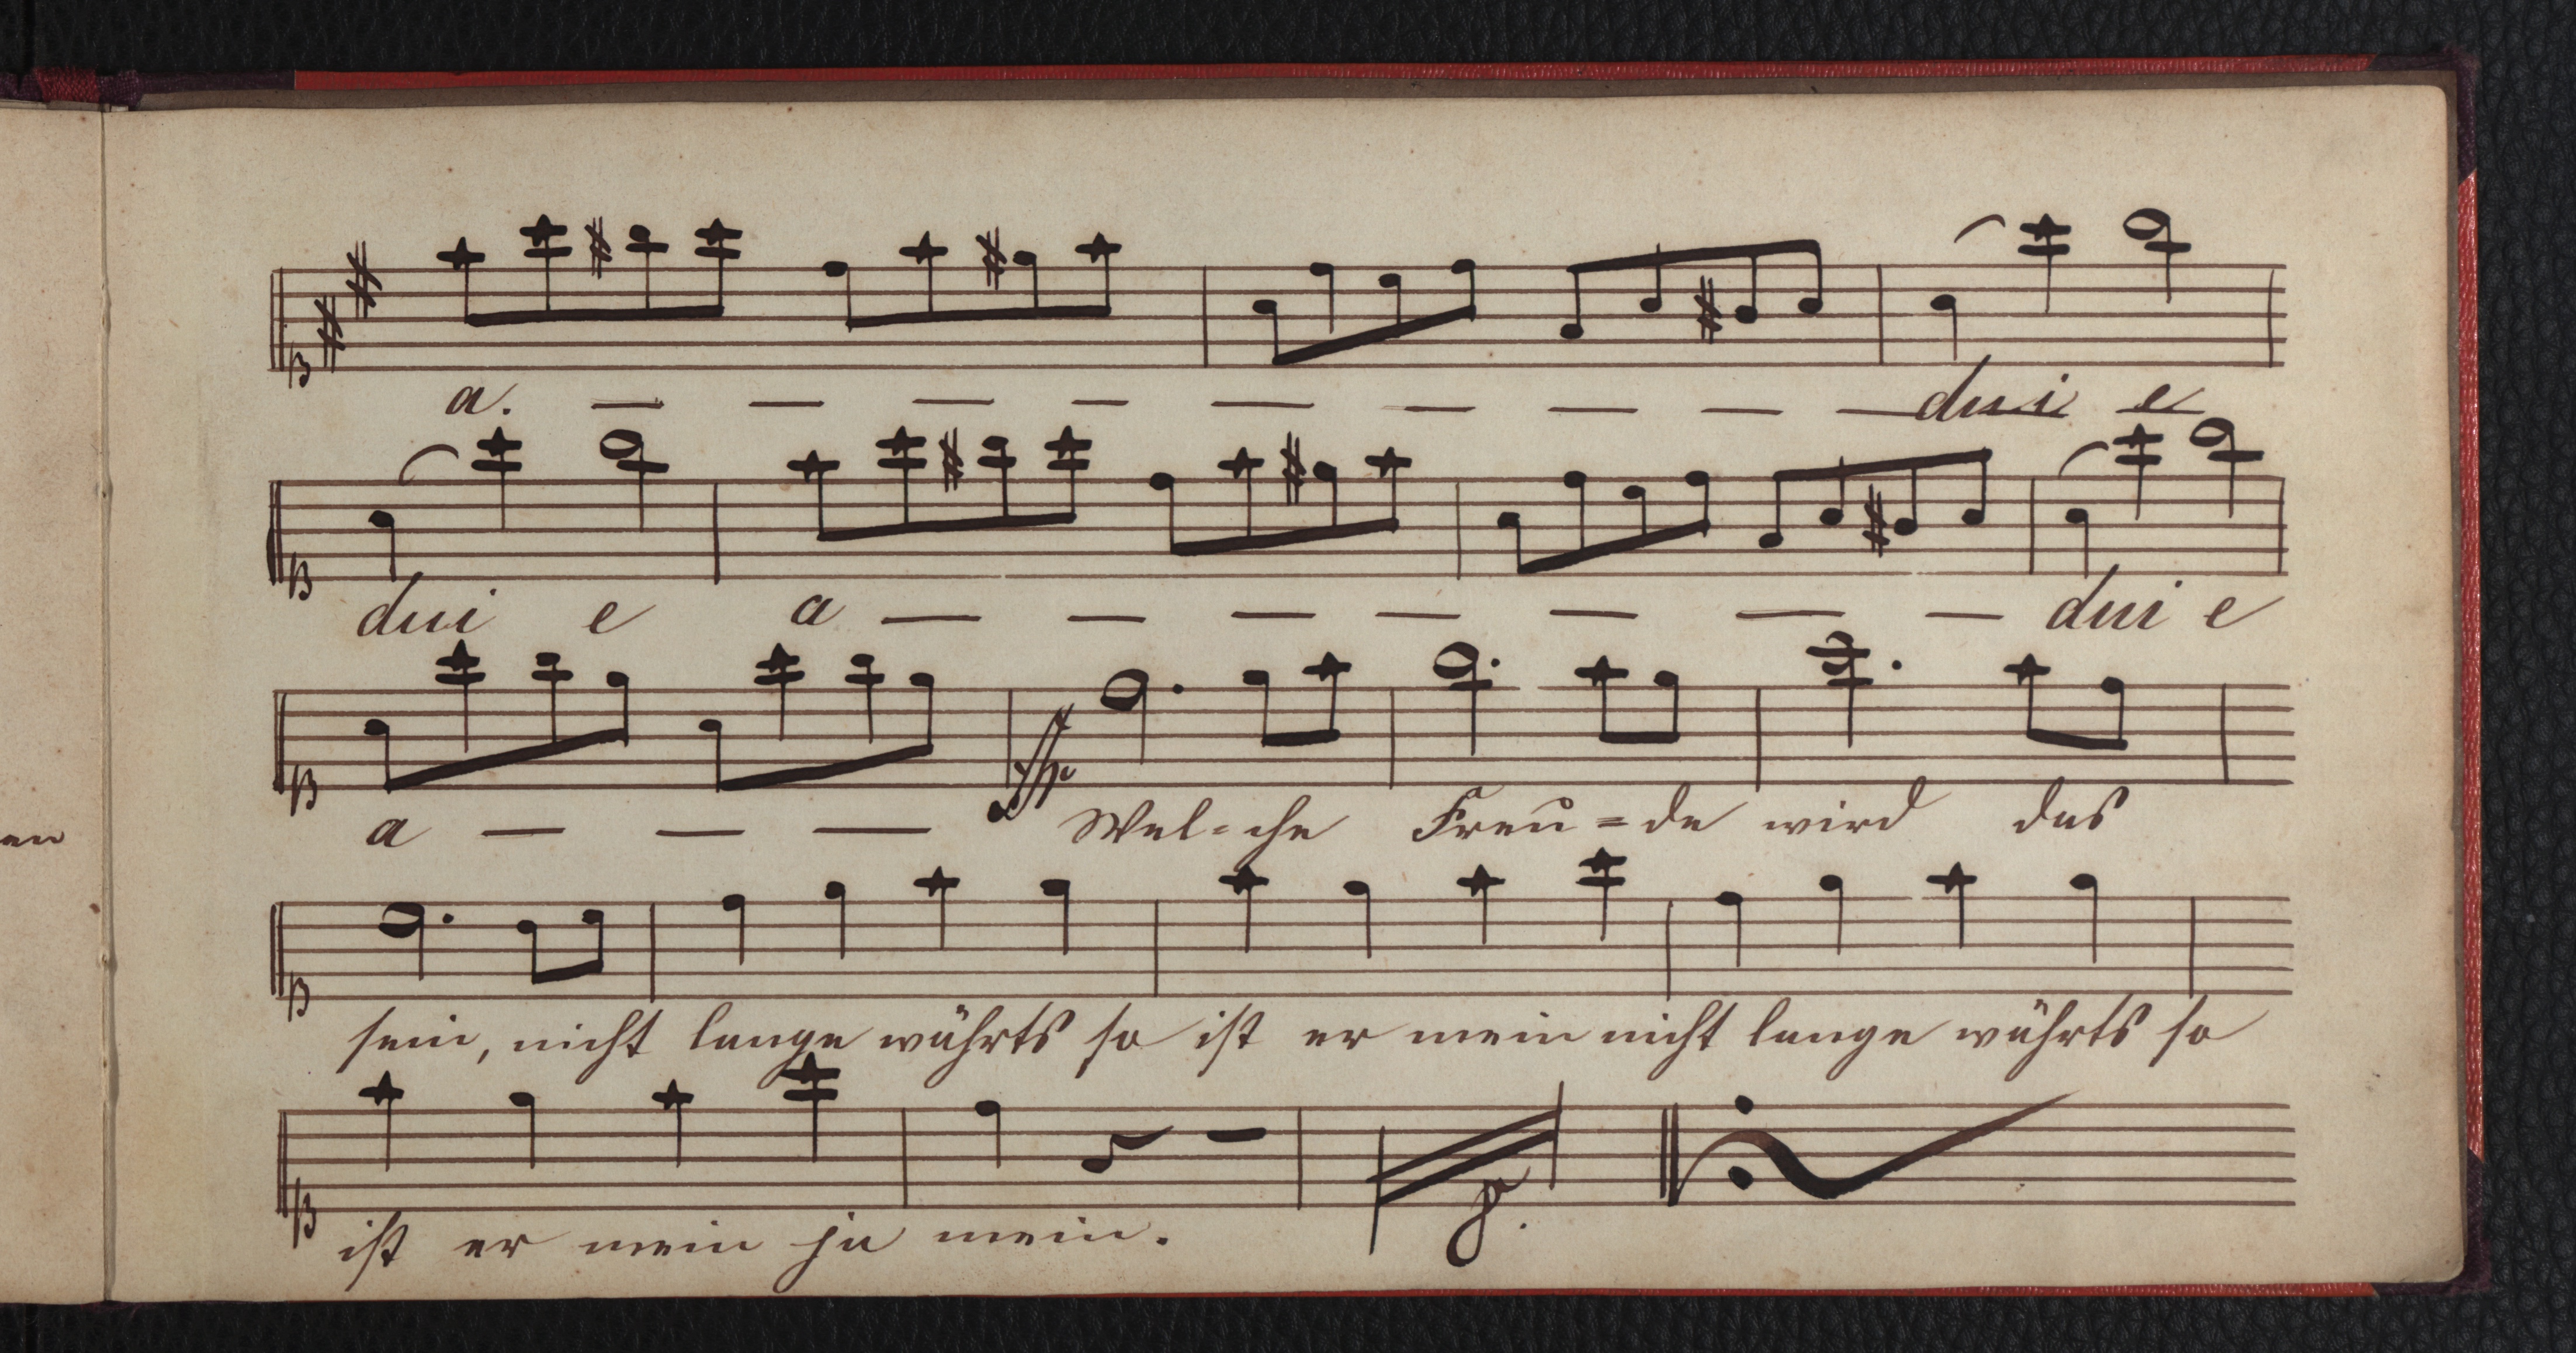 en
a. — — — — — — — — — dui e
dui e a — — — — — — — dui e
a — — — Wel=che Freu=de wird das
sein, nicht lange währts so ist er mein nicht lange währts so
ist er mein ja mein.
p.